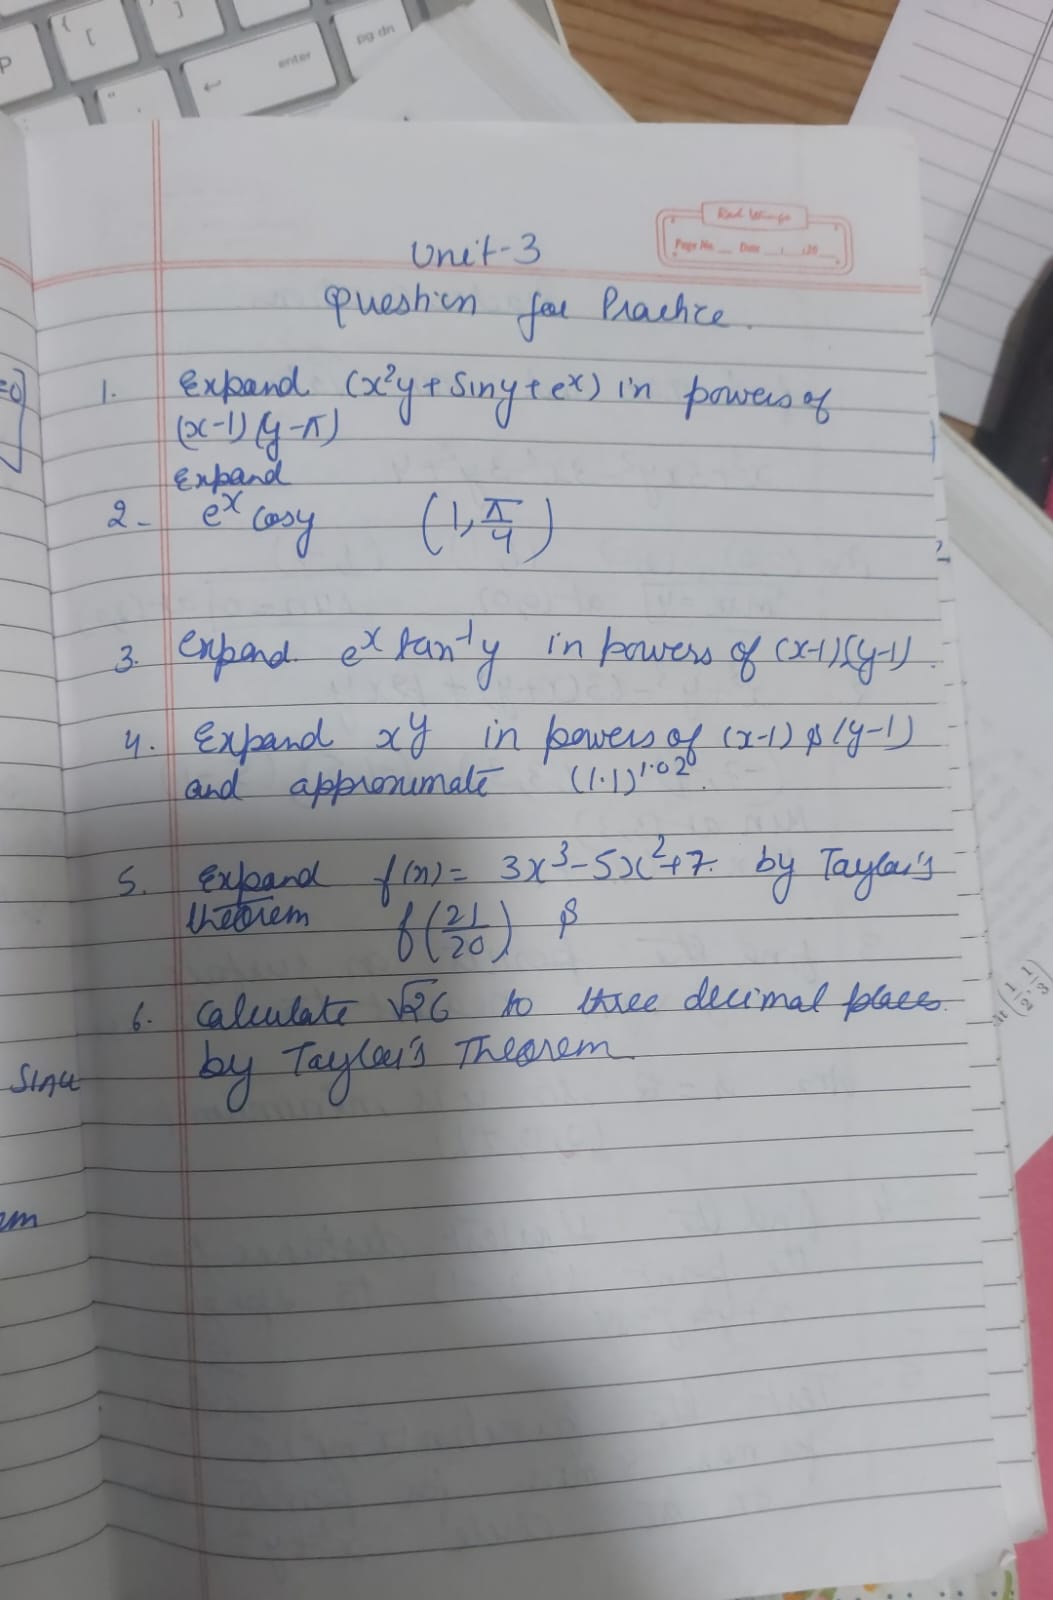 P
{
[
}
]
"
'
enter
pg dn
Red Wings
Page No. Date / /20
Unit-3
Question for Practice.
=0]
1. Expand (x²y + Siny + eˣ) in powers of
(x-1) (y-π)
Expand
2- eˣ cosy (1, π/4)
3. expand eˣ tan⁻¹y in powers of (x-1) (y-1).
4. Expand xy in powers of (x-1) & (y-1)
and approximate (1.1)^1.02.
5. Expand f(x) = 3x³-5x²+7. by Taylor's
theorem f(21/20) &
6. Calculate √26 to three decimal places.
by Taylor's Theorem
(1/2, 1/3)